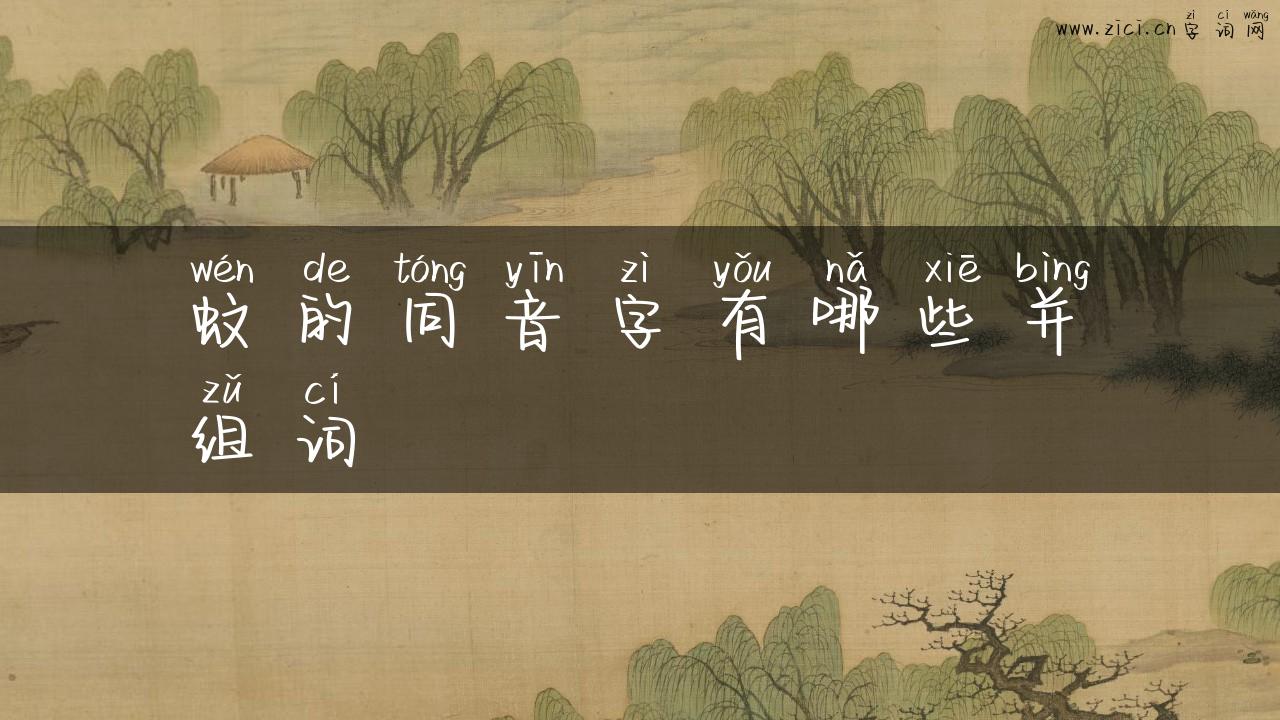 zì cí wǎng
www.zici.cn 字词网
wén de tóng yīn zì yǒu nǎ xiē bìng
蚊的同音字有哪些并
zǔ cí
组词